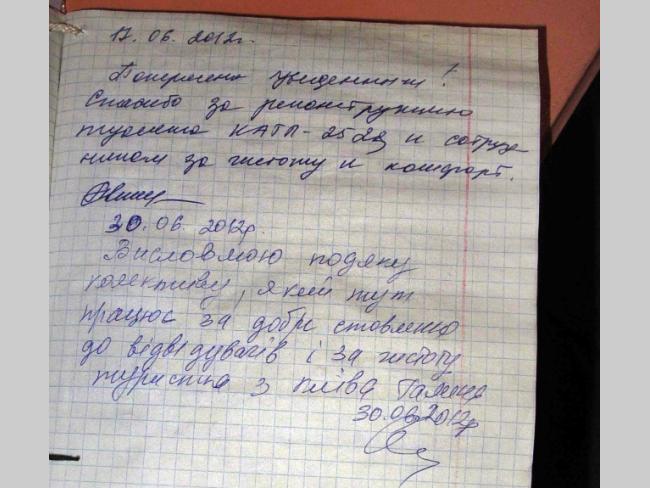 17.06.2012г.
увиденным!
Спасибо за реконструкцию
туалета КАТП-2528 и сотруд
никам за чистоту и комфорт.
30.06.2012р
Висловлюю подяку
колективу, який тут
працює за добре ставлення
до відвідувачів і за чистоту
туристка з Києва Галина
30.06.2012р